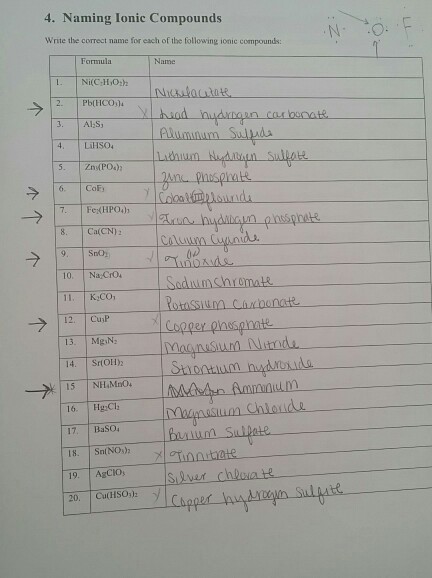 4. Naming Ionic Compounds
·N· O: F
Write the correct name for each of the following ionic compounds:
Formula Name
1. Ni(C₂H₃O₂)₂ Nickelacitate
2. Pb(HCO₃)₄ x Lead hydrogen carbonate
3. Al₂S₃ Aluminum Sulfide
4. LiHSO₄ Lithium Hydrogen Sulfate
5. Zn₃(PO₄)₂ Zinc Phosphate
6. CoF₃ Cobalt(III) flouride
7. Fe₂(HPO₄)₃ Iron hydrogen phosphate
8. Ca(CN)₂ Calcium Cyanide
9. SnO₂ Tin oxide
10. Na₂CrO₄ Sodium chromate
11. K₂CO₃ Potassium Carbonate
12. Cu₃P x Copper phosphate
13. Mg₃N₂ Magnesium Nitride
14. Sr(OH)₂ Strontium hydroxide
15 NH₄MnO₄ Ammonium
16. Hg₂Cl₂ Magnesium Chloride
17. BaSO₄ Barium Sulfate
18. Sn(NO₃)₂ x Tinnitrate
19. AgClO₃ Silver chlorate
20. Cu(HSO₃)₂ Copper hydrogen sulfite